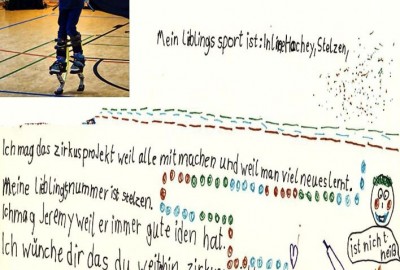 Mein Lieblings sport ist: Inline Hockey, Stelzen,
Ich mag das zirkusprojekt weil alle mit machen und weil man viel neues lernt.
Meine Lieblingsnummer ist stelzen.
Ich mag Jeremy weil er immer gute iden hat.
Ich wünche dir das du weithin
ist nicht
heiß